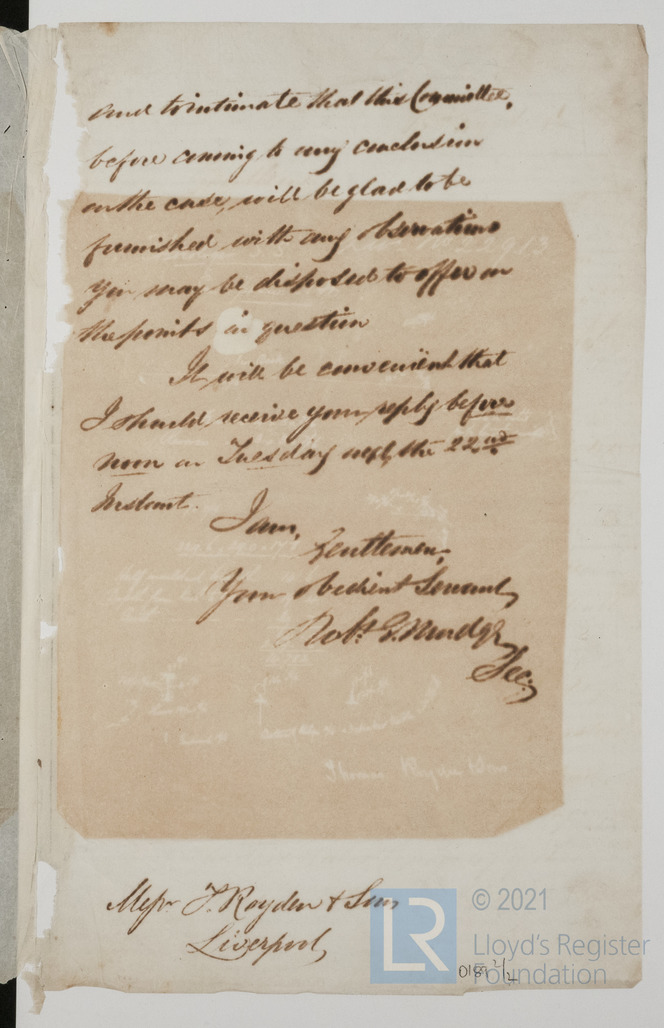 and to intimate that this Committee,
before coming to any conclusion
on the case, will be glad to be
furnished with any observations
you may be disposed to offer on
the points in question
It will be convenient that
I should receive your reply before
noon on Tuesday next, the 22nd
Instant.
I am,
Gentlemen,
Your obedient Servant,
Robt G. Mudge
Sec:
Thomas Royden & Sons
Messrs T. Royden & Sons
Liverpool,
LR
© 2021
Lloyd's Register
Foundation